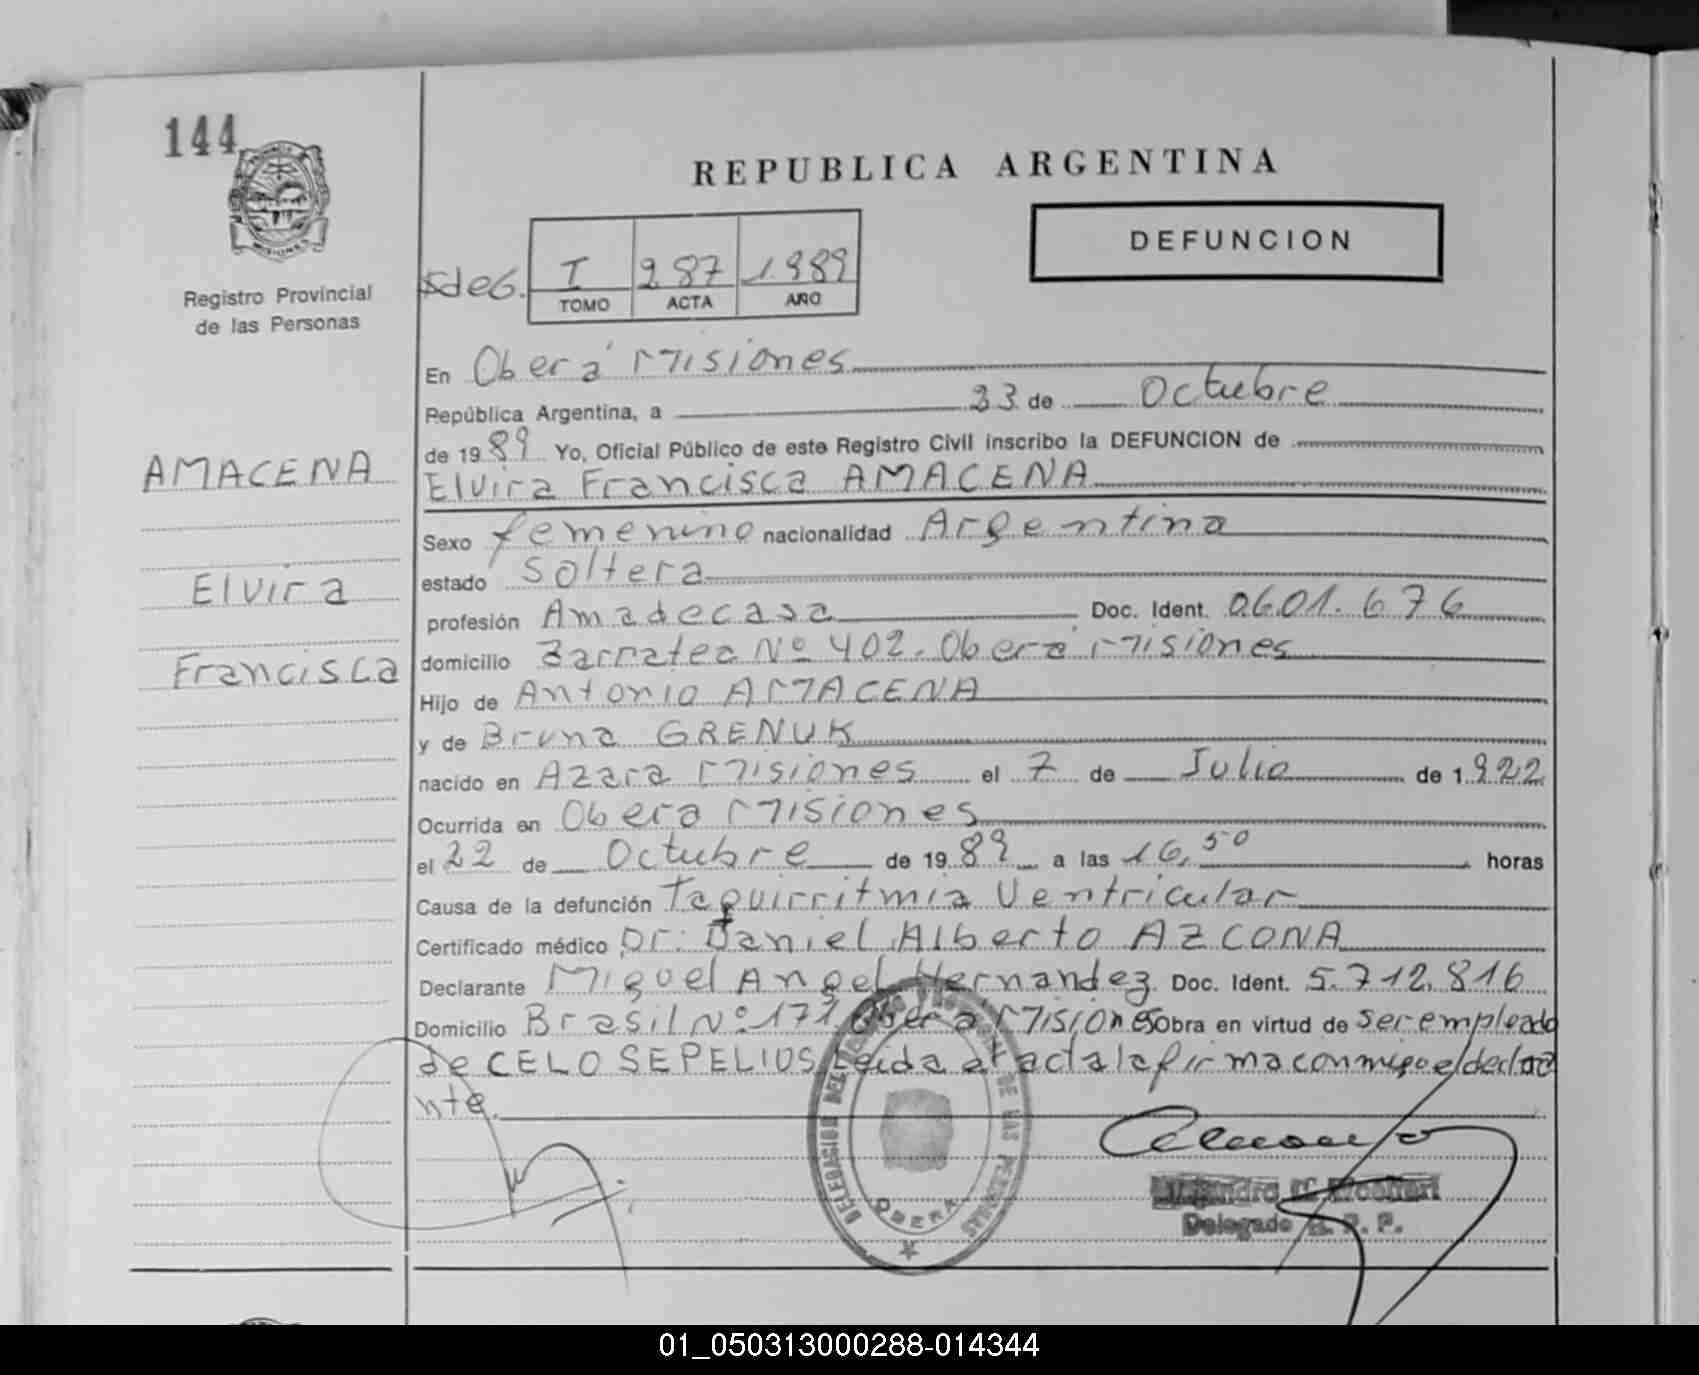 144
MISIONES
Registro Provincial
de las Personas
REPUBLICA ARGENTINA
DEFUNCION
SdeG. I 287 1.989
TOMO ACTA AÑO
En Oberá Misiones
República Argentina, a 23 de Octubre
de 1989 Yo, Oficial Público de este Registro Civil inscribo la DEFUNCION de
Elvira Francisca AMACENA
AMACENA
Elvira
Francisca
Sexo femenino nacionalidad Argentina
estado Soltera
profesión Amadecasa Doc. Ident. 0601.676
domicilio Zarratea Nº 402. Oberá Misiones
Hijo de Antonio AMACENA
y de Bruna GRENUK
nacido en Azara Misiones el 7 de Julio de 1.922
Ocurrida en Obera Misiones
el 22 de Octubre de 1989 a las 16,50 horas
Causa de la defunción Taquirritmia Ventricular
Certificado médico Dr. Daniel Alberto AZCONA
Declarante Miguel Angel Hernandez Doc. Ident. 5.712.816
Domicilio Brasil Nº 171 Obera Misiones Obra en virtud de ser empleado
de CELO SEPELIOS Leida el acta la firma conmigo el declara
nte.
DELEGACION DEL REGISTRO PROVINCIAL DE LAS PERSONAS
OBERA
Alejandro
Delegado R. P. P.
01_050313000288-014344